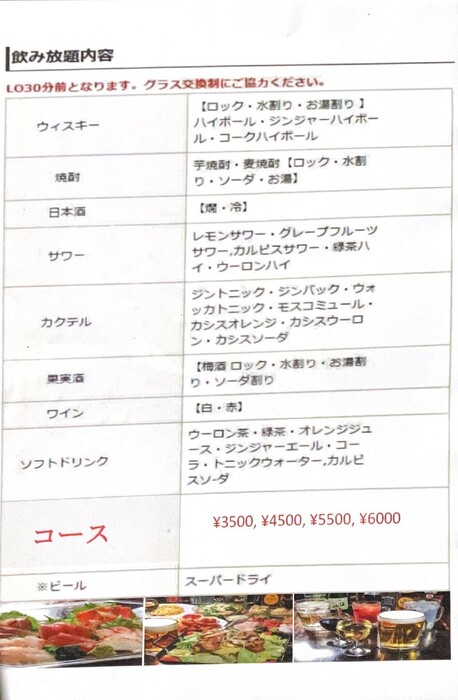 飲み放題内容
LO30分前となります。グラス交換制にご協力ください。
ウィスキー
【ロック・水割り・お湯割り】
ハイボール・ジンジャーハイボー
ル・コークハイボール
焼酎
芋焼酎・麦焼酎【ロック・水割
り・ソーダ・お湯】
日本酒
【燗・冷】
サワー
レモンサワー・グレープフルーツ
サワー,カルピスサワー・緑茶ハ
イ・ウーロンハイ
カクテル
ジントニック・ジンバック・ウォ
ッカトニック・モスコミュール・
カシスオレンジ・カシスウーロ
ン・カシスソーダ
果実酒
【梅酒 ロック・水割り・お湯割
り・ソーダ割り
ワイン
【白・赤】
ソフトドリンク
ウーロン茶・緑茶・オレンジジュ
ース・ジンジャーエール・コー
ラ・トニックウォーター,カルピ
スソーダ
コース
¥3500, ¥4500, ¥5500, ¥6000
※ビール
スーパードライ